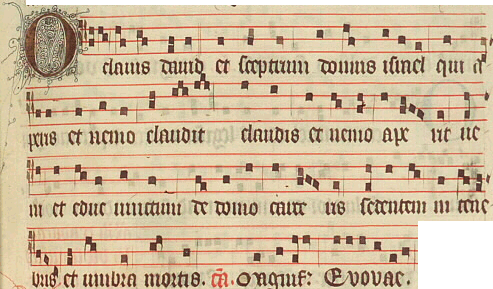 O clavis david et sceptrum domus israel qui a
peris et nemo claudit claudis et nemo ape rit ve
ni et educ vinctum de domo carce ris sedentem in tene
bris et umbra mortis. Evovae.